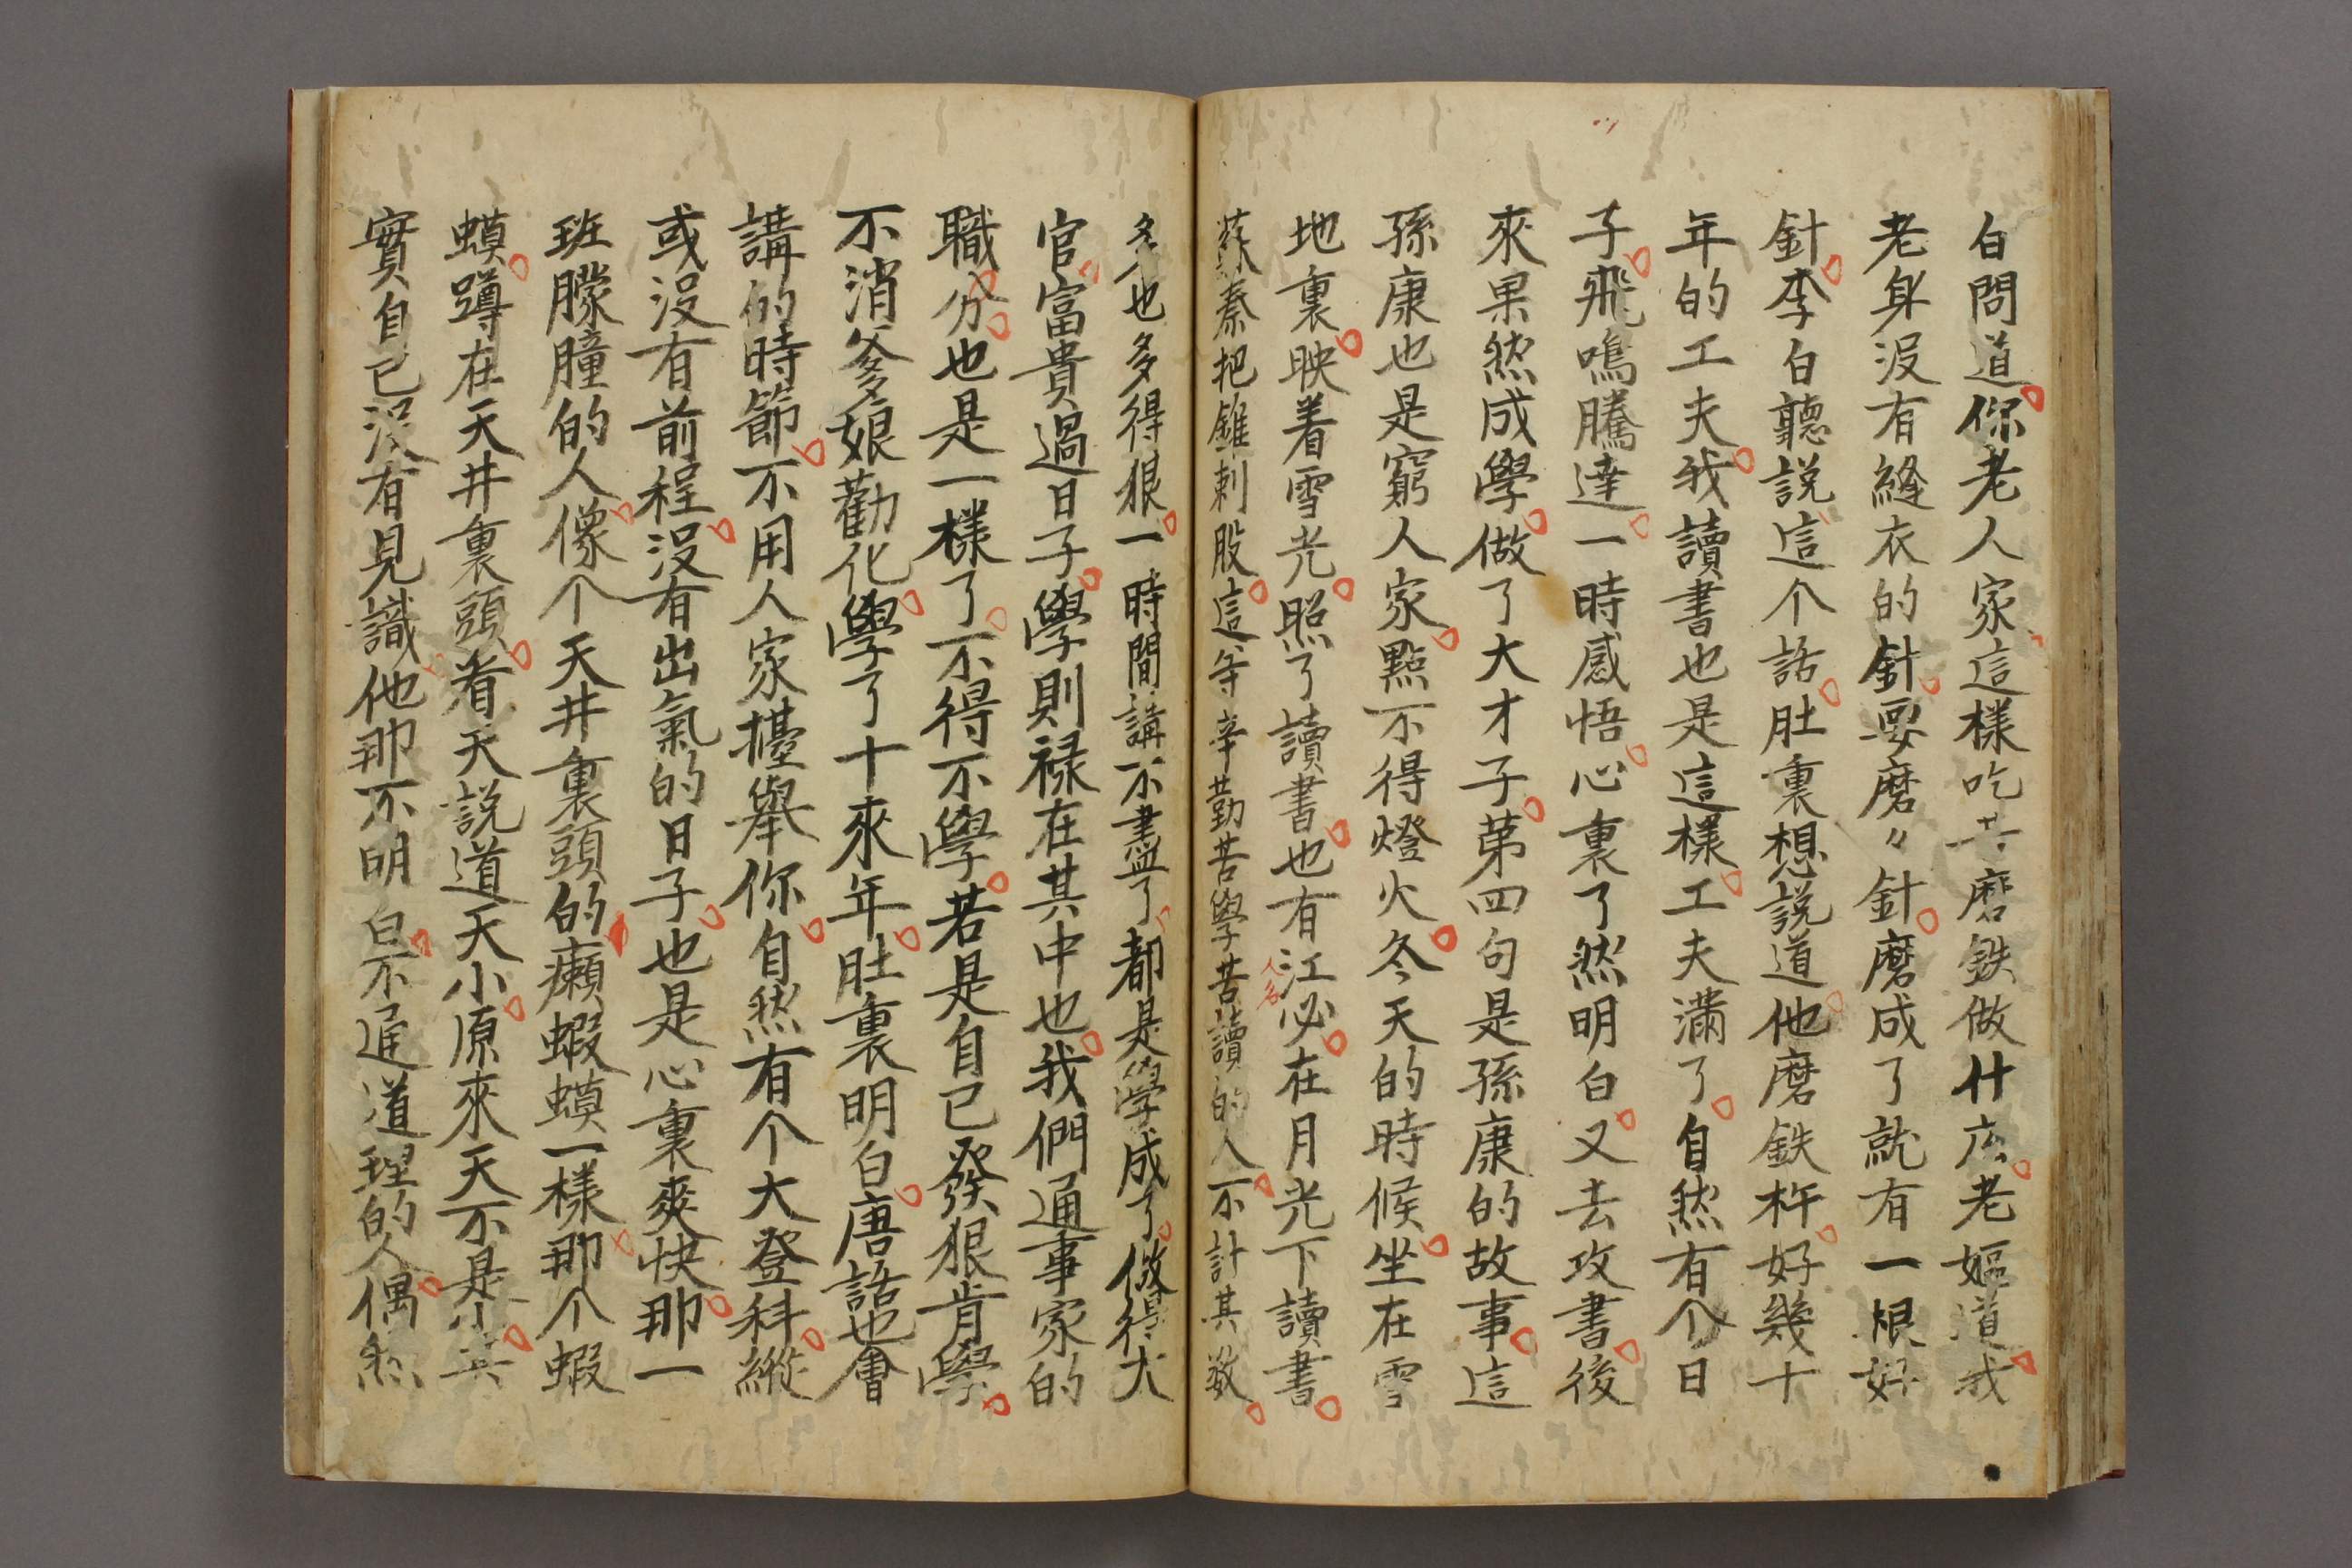 白問道你老人家這樣吃苦磨鉄做什庅老嫗道我
老身沒有縫衣的針要磨〻針磨成了就有一根好
針李白聽說這个話肚裏想說道他磨鉄杵好幾十
年的工夫我讀書也是這樣工夫滿了自然有个日
子飛鳴騰達一時感悟心裏了然明白又去攻書後
來果然成學做了大才子第四句是孫康的故事這
孫康也是窮人家點不得燈火冬天的時候坐在雪
地裏映着雪光照了讀書也有江必在月光下讀書
人名
蘇秦把錐刺股這等辛勤苦學苦讀的人不計其數
多也多得狠一時間講不盡了都是學成了做得大
官富貴過日子學則祿在其中也我們通事家的
職分也是一樣了不得不學若是自已發狠肯學
不消爹娘勸化學了十來年肚裏明白唐話也會
講的時節不用人家擡舉你自然有个大登科縱
或沒有前程沒有出氣的日子也是心裏爽快那一
班朦朣的人像个天井裏頭的癩蝦蟆一樣那个蝦
蟆蹲在天井裏頭看天說道天小原來天不是小其
實自已沒有見識他那不明白不通道理的人偶然